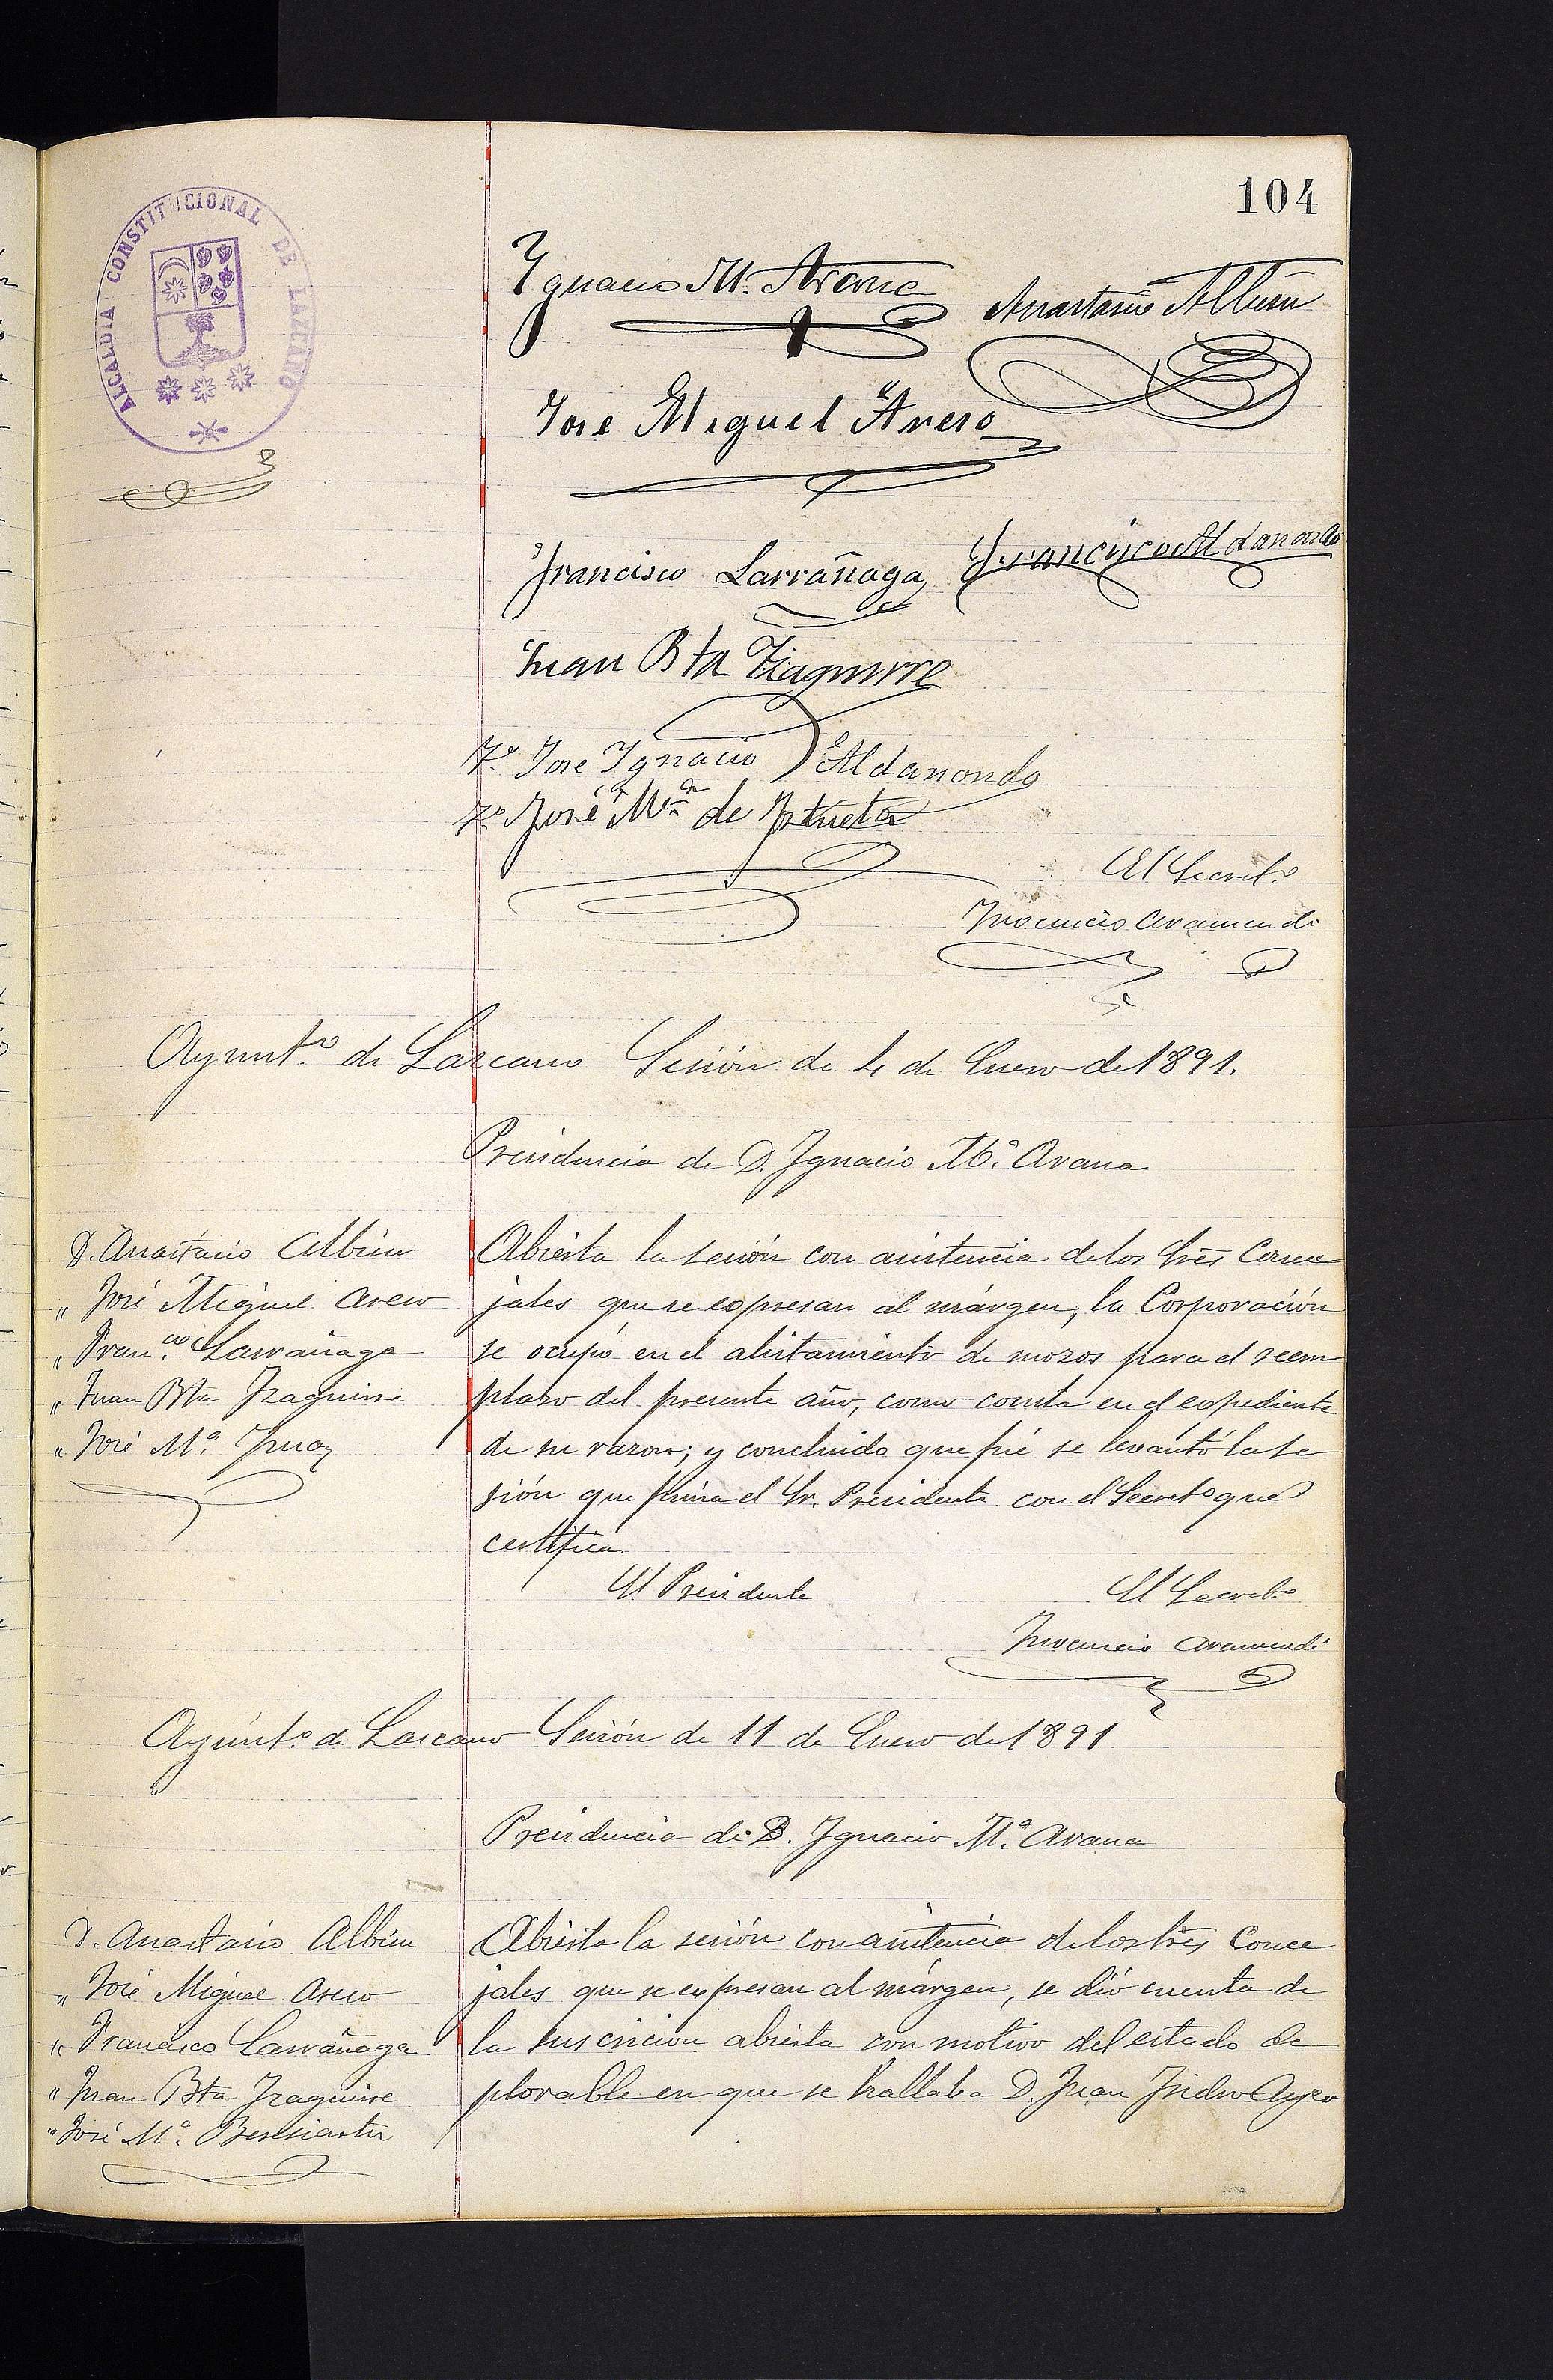 104
ALCALDIA CONSTITUCIONAL DE LAZCANO
Ygnacio M. Arana
Anastasio Albisu
Jose Miguel Aseso
Francisco Larrañaga
Francisco Aldanondo
Juan Bta Izaguirre
Vº Jose Ygnacio Aldanondo
Vº José Mª de Iztueta
El Secretº
Inocencio Aramendi
Ayuntº de Lazcano Sesión de 4 de Enero de 1891.
Presidencia de D. Ignacio Mª Arana
D. Anastasio Albisu
" José Miguel Aseso
" Franco Larrañaga
" Juan Bta Izaguirre
" José Mª
Abierta la sesión con asistencia de los Sres Conce
jales que se expresan al márgen, la Corporación
se ocupó en el alistamiento de mozos para el reem
plazo del presente año, como consta en el expediente
de su razon; y concluido que fué se levantó la se
sión que firma el Sr. Presidente con el Secretº que
certifica.
El Presidente
El Secretº
Inocencio Aramendi
Ayuntº de Lazcano Sesión de 11 de Enero de 1891
Presidencia de D. Ignacio Mª Arana
D. Anastasio Albisu
" José Miguel Aseso
" Francisco Larrañaga
" Juan Bta Izaguirre
" José Mª Beresiartu
Abierta la sesión con asistencia de los Sres Conce
jales que se expresan al márgen, se dió cuenta de
la suscricion abierta con motivo del estado de
plorable en que se hallaba D. Juan Isidro